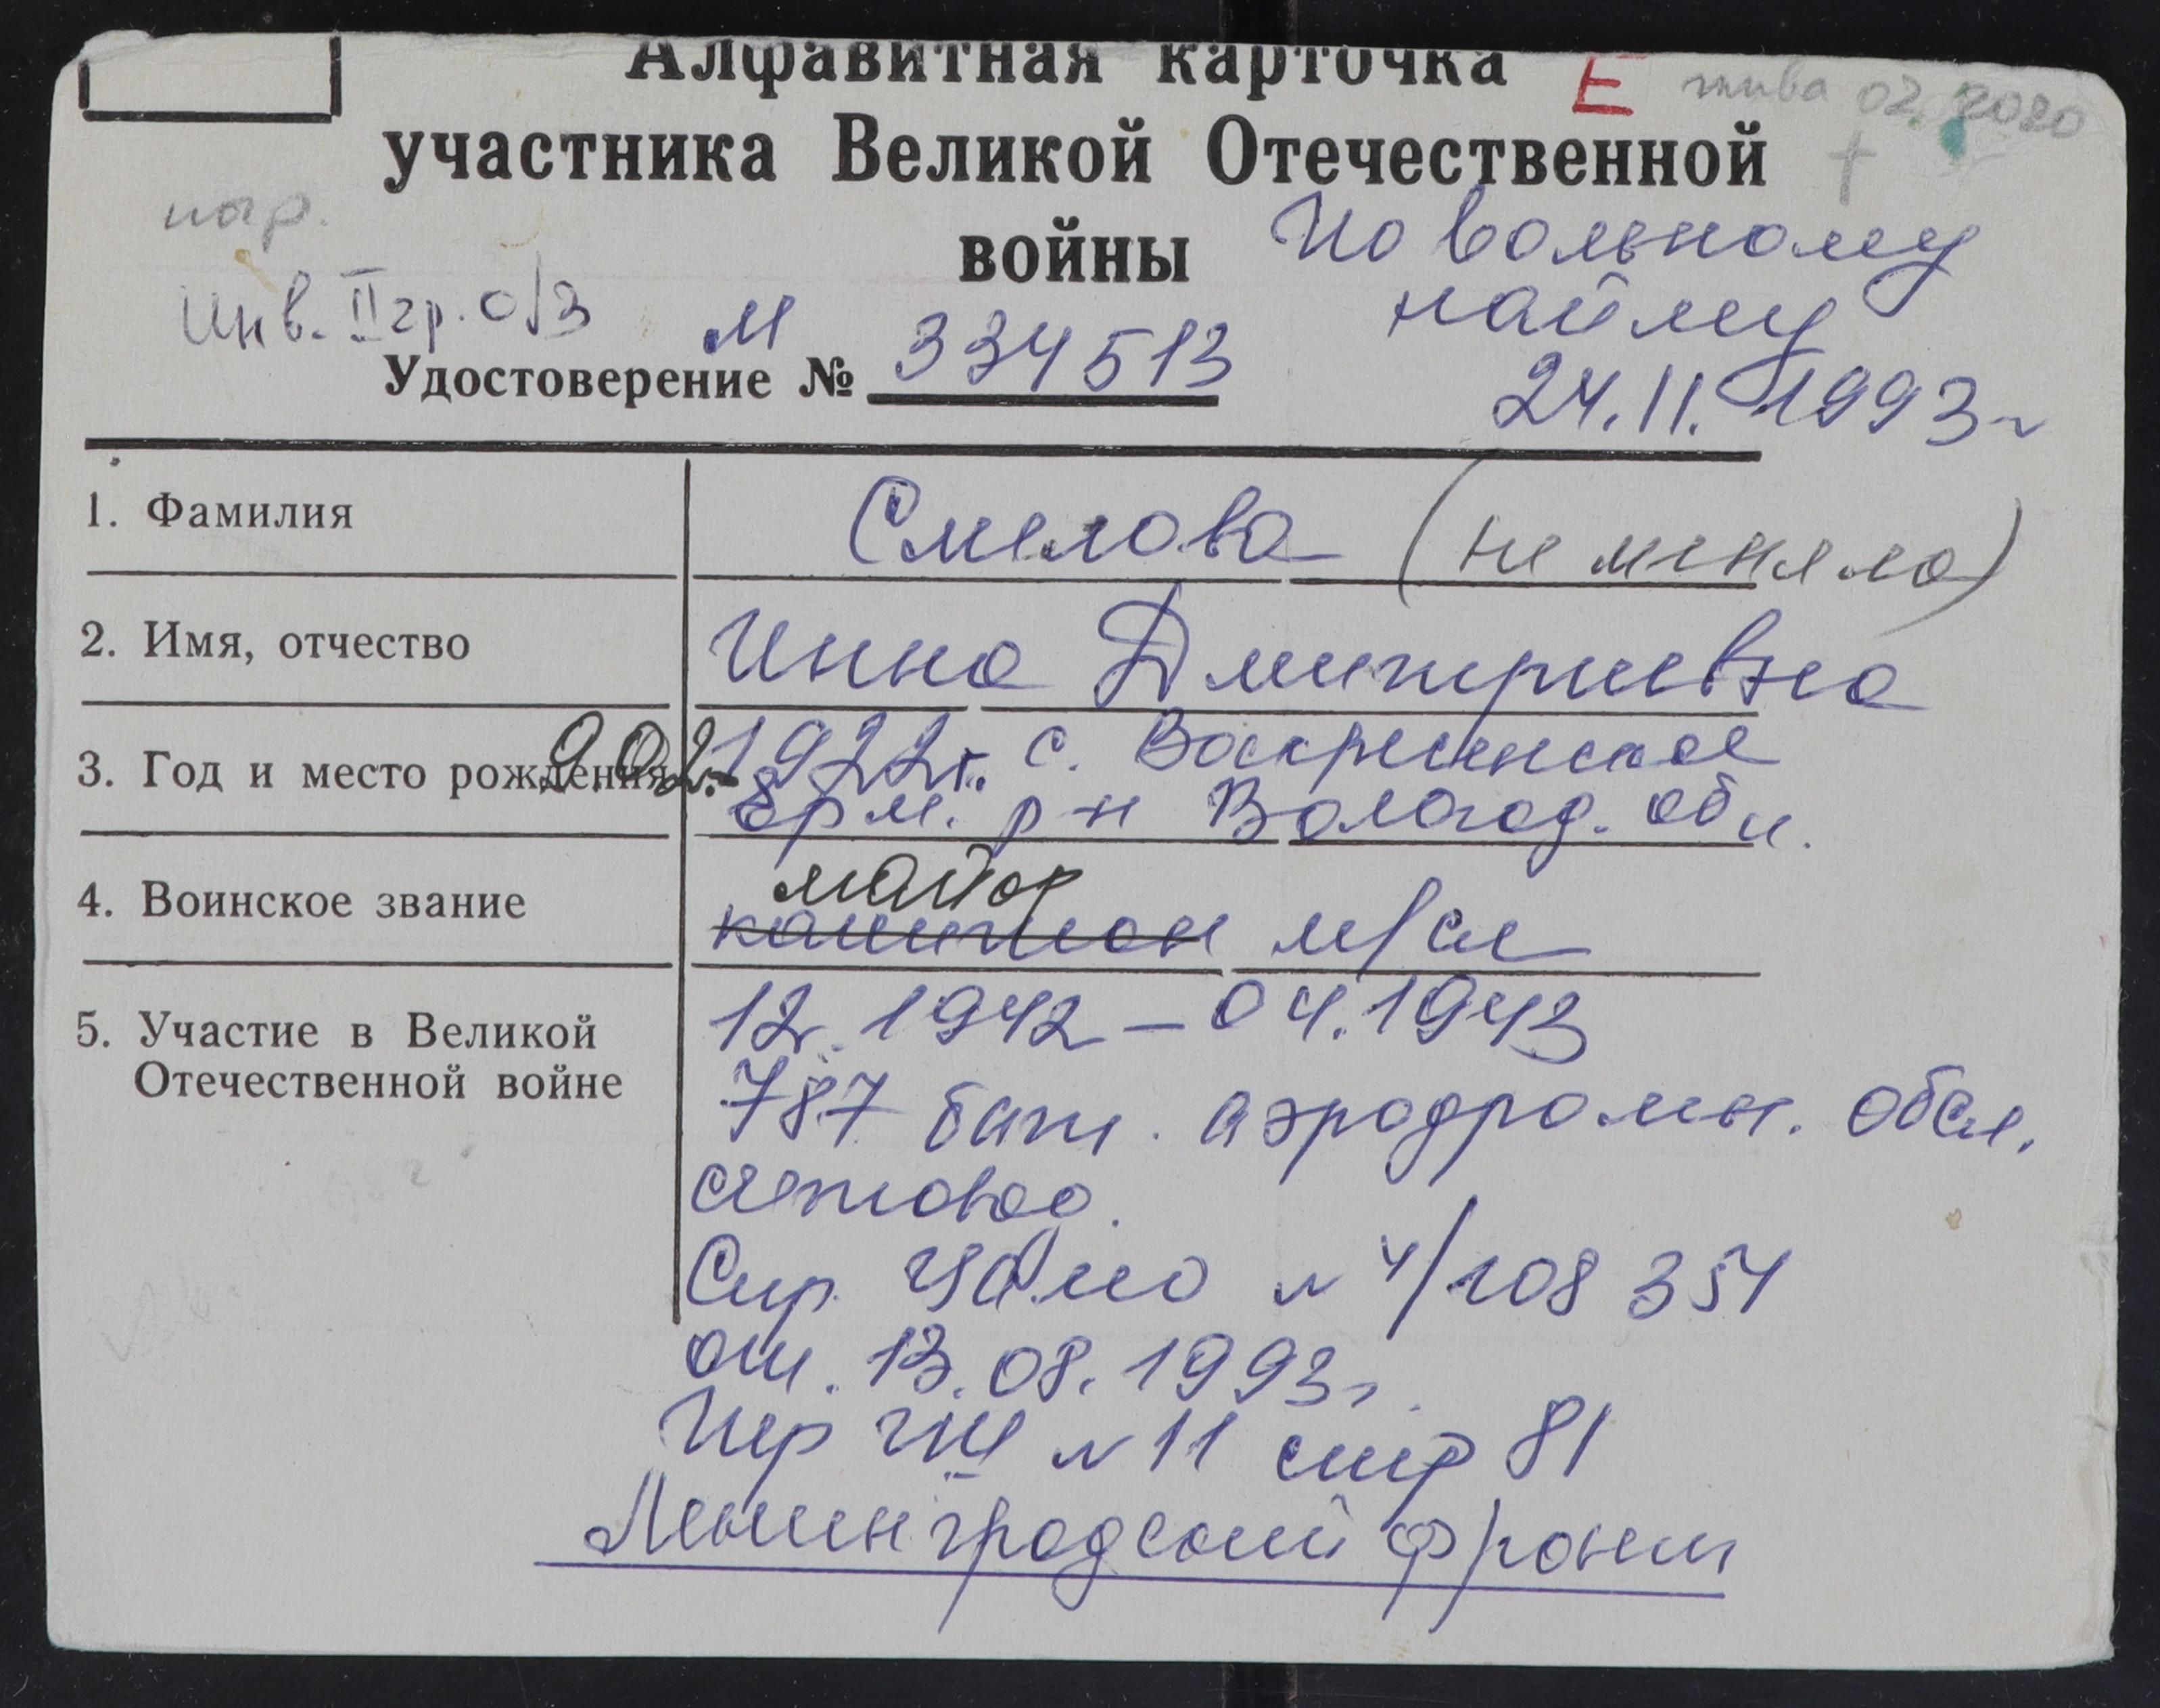 Алфавитная карточка Е жива 02.2020
участника Великой Отечественной
войны По вольному
нагр.
найму
Инв. II гр. о/з М
Удостоверение № 334513
24.11.1993г
1. Фамилия Смелова (не меняла)
2. Имя, отчество Инна Дмитриевна
3. Год и место рождения 9.02. 1922г. с. Воскресенское
р-н Вологод. обл.
майор
4. Воинское звание капитан м/сл
5. Участие в Великой 12.1942 – 04.1943
Отечественной войне 787 бат. аэродромн. обсл.
счетовод.
Спр. ЦАМО № 4/108354
от. 13.08.1993г.
№ 11 стр 81
Ленинградский фронт